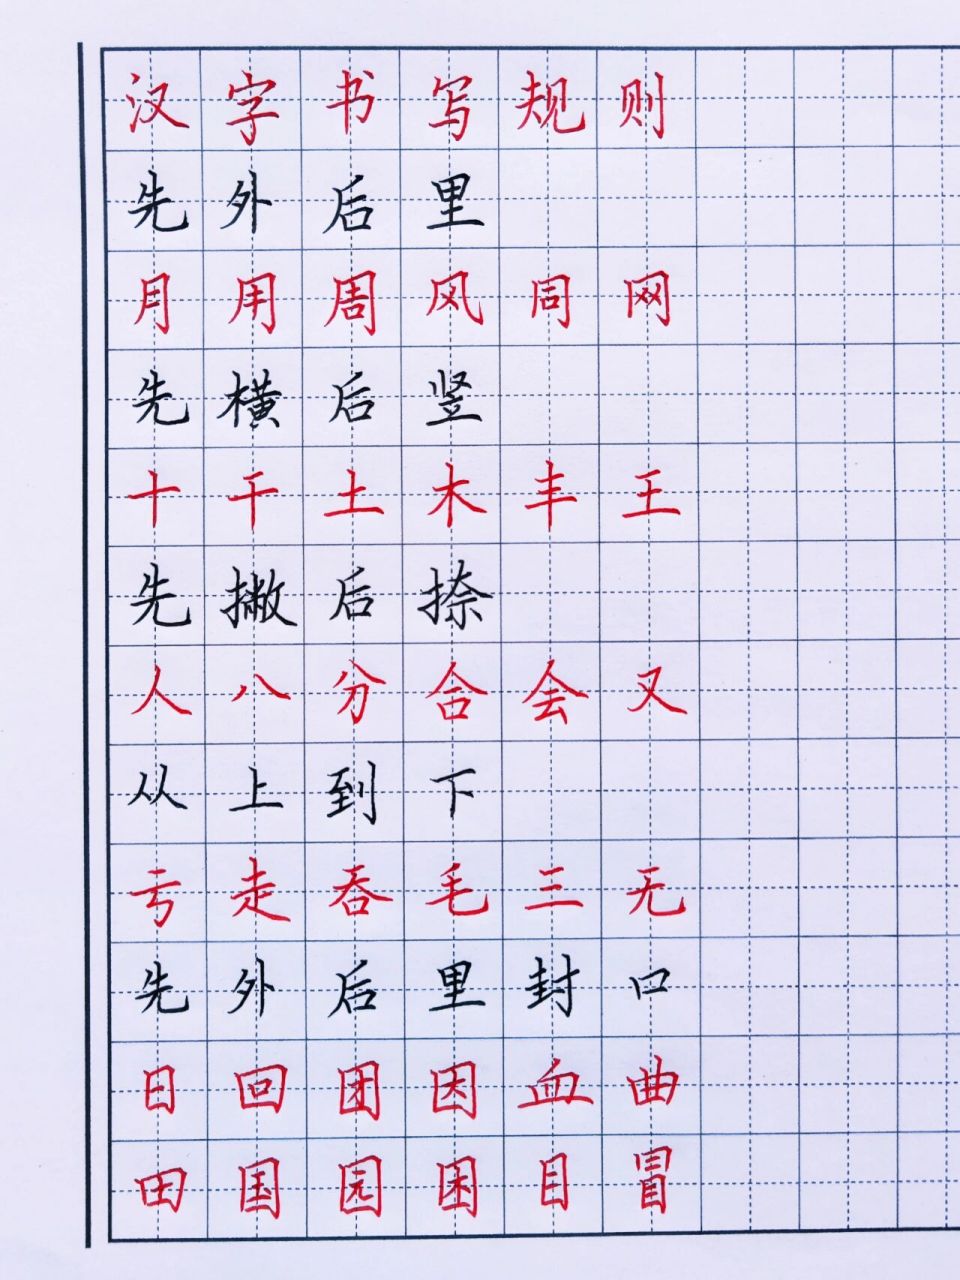 汉字书写规则
先外后里
月用周风同网
先横后竖
十干土木丰王
先撇后捺
人八分合会又
从上到下
亏走吞毛三无
先外后里封口
日回团因血曲
田国园困目冒